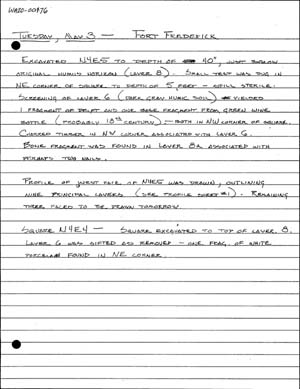 WA20-00476
TUESDAY, MAY 3 — FORT FREDERICK
EXCAVATED N4E5 TO DEPTH OF 40", JUST BELOW
ORIGINAL HUMUS HORIZON (LAYER 8). SMALL TEST WAS DUG IN
NE CORNER OF SQUARE TO DEPTH OF 5 FEET - STILL STERILE.
SCREENING OF LAYER 6 (DARK GRAY HUMIC SOIL) YIELDED
1 FRAGMENT OF DELFT AND ONE BASE FRAGMENT FROM GREEN WINE
BOTTLE (PROBABLY 18TH CENTURY) - BOTH IN NW CORNER OF SQUARE.
CHARRED TIMBER IN NW CORNER ASSOCIATED WITH LAYER 6.
BONE FRAGMENT WAS FOUND IN LAYER 8A ASSOCIATED WITH
PERHAPS TWO NAILS.
PROFILE OF WEST FACE OF N4E5 WAS DRAWN, OUTLINING
NINE PRINCIPAL LAYERS (SEE PROFILE SHEET #1). REMAINING
THREE FACES TO BE DRAWN TOMORROW.
SQUARE N4E4 - SQUARE EXCAVATED TO TOP OF LAYER 8.
LAYER 6 WAS SIFTED AS REMOVED - ONE FRAG. OF WHITE
PORCELAIN FOUND IN NE CORNER.